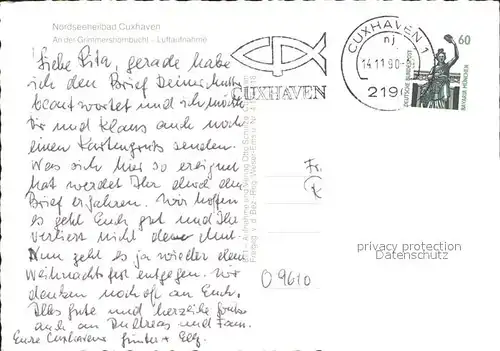 Nordseeheilbad Cuxhaven
An der Grimmershörnbucht - Luftaufnahme
Liebe Rita, gerade habe
ich den Brief Deiner Mutter
beantwortet und ich möchte
Dir und Klaus auch noch
einen Kartengruß senden.
Was sich hier so ereignet
hat werdet Ihr durch den
Brief erfahren. Wir hoffen
es geht Euch gut und Ihr
verliert nicht den Mut.
Nun geht es ja wieder dem
Weihnachtsfest entgegen. Wir
denken noch oft an Euch.
Alles gute und herzliche Grüße
auch an Andreas und Fam.
Eure Cuxhavener Günter +
CUXHAVEN
CUXHAVEN 1
nj
14.11.90
219
60
DEUTSCHE BUNDESPOST
BAVARIA MÜNCHEN
Fr.
O 9610
privacy protection
Datenschutz